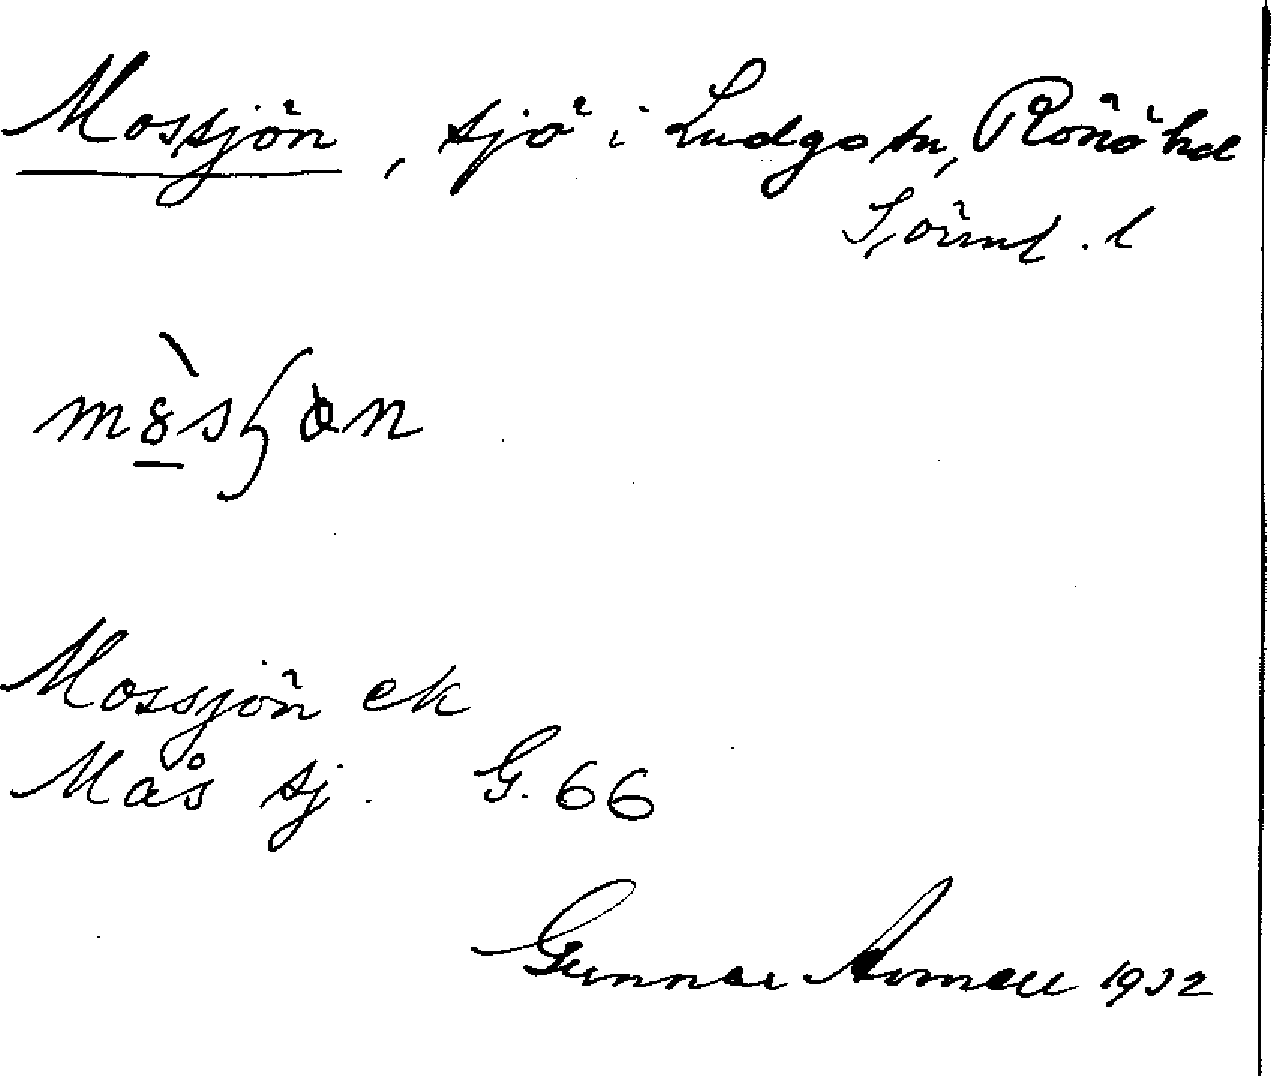 Mossjön, sjö i Ludgo sn, Rönö hd
Sörml. l
Mossjön ek
Mås sj. G. 66
Gunnar Armell 1932